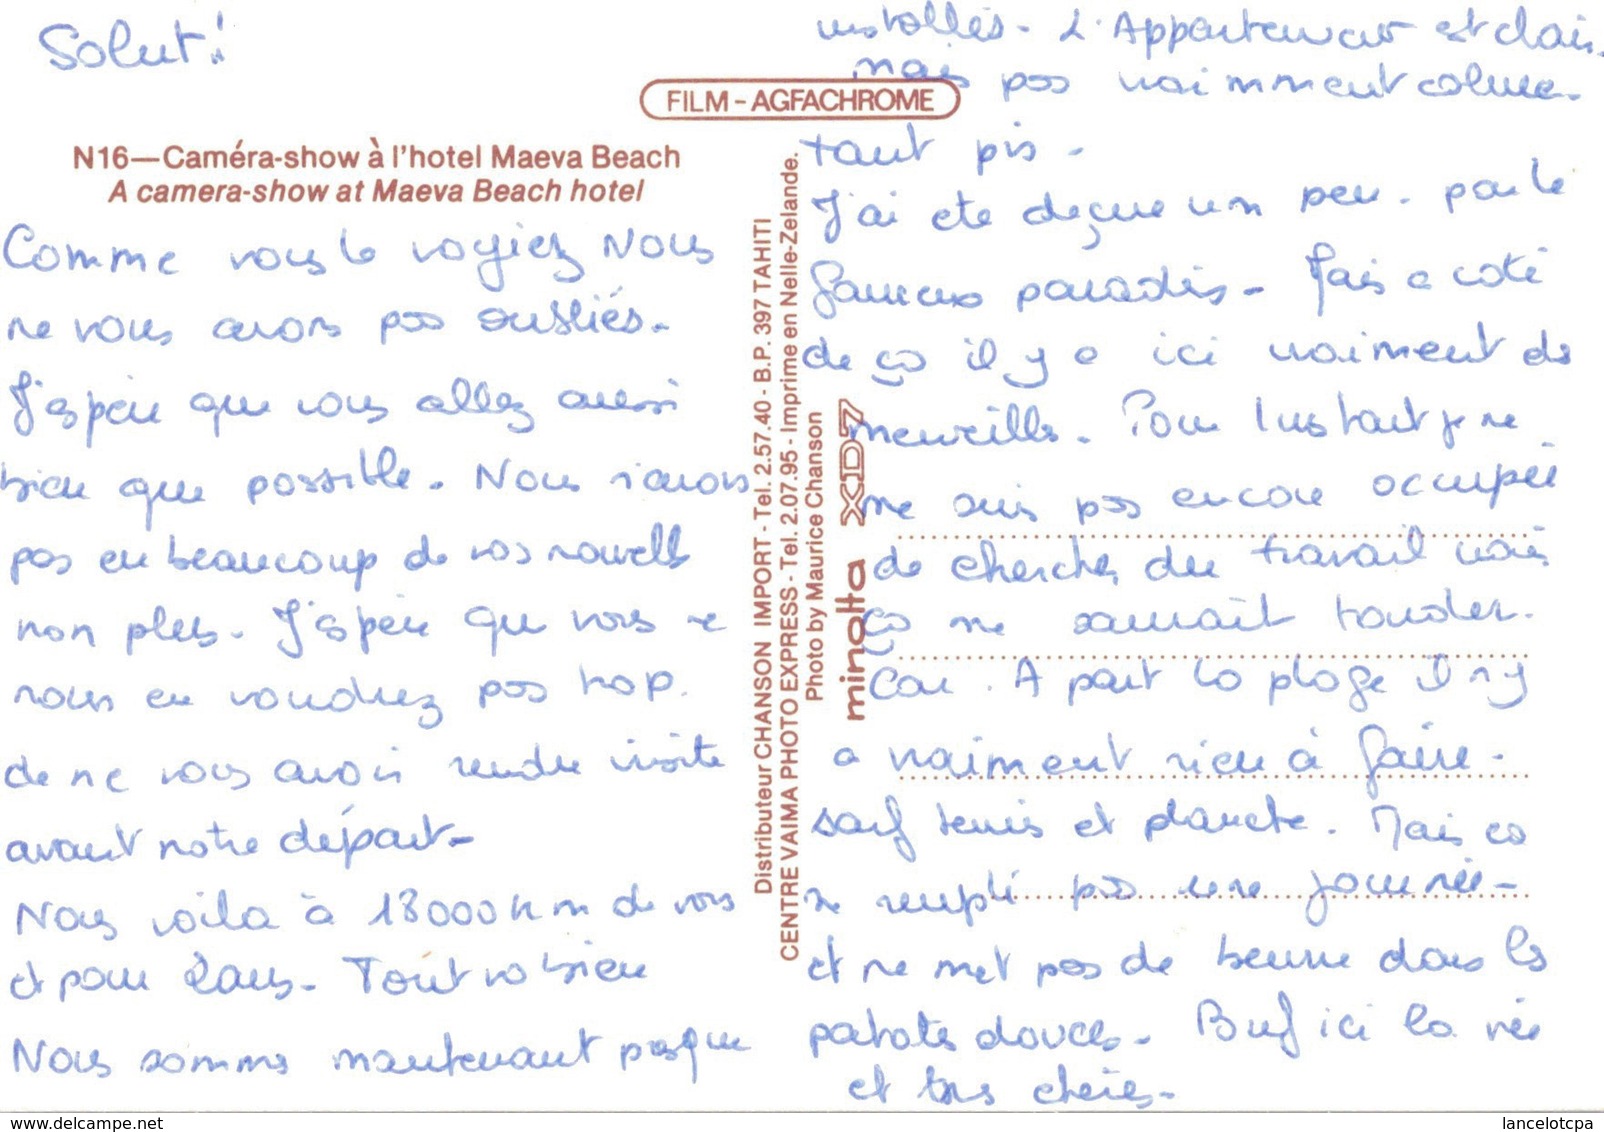 Salut!
N16—Caméra-show à l'hotel Maeva Beach
A camera-show at Maeva Beach hotel
Comme vous le voyiez Nous
ne vous avons pas oubliés.
J'espère que vous allez aussi
bien que possible. Nous n'avons
pas eu beaucoup de vos nouvells
non plus. J'espère que vous ne
nous en voudrez pas trop.
de ne vous avoir rendu visite
avant notre départ-
Nous voila à 18000 km de vous
et pour 2 ans. Tout va bien
Nous somms maintenant presque
FILM - AGFACHROME
Distributeur CHANSON IMPORT - Tel. 2.57.40 - B.P. 397 TAHITI
CENTRE VAIMA PHOTO EXPRESS - Tel. 2.07.95 - Imprime en Nelle-Zelande.
Photo by Maurice Chanson
minolta XD7
installés - L'Appartement est clair.
mais pas vraimment calme.
tant pis -
J'ai ete deçue un peu. par le
fameux paradis - Mais a coté
de ça il y a ici vraiment de
merveills. Pour l'instant je ne
me suis pas encore occupée
de chercher du travail mais
ça ne saurait tarder.
Car. A part la plage il n'y
a vraiment rien à faire -
sauf tenis et planche. Mais ca
ne rempli pas une journée -
et ne met pas de beurre dans ls
patates douces. Bref ici la vie
et trs chère -
lancelotcpa